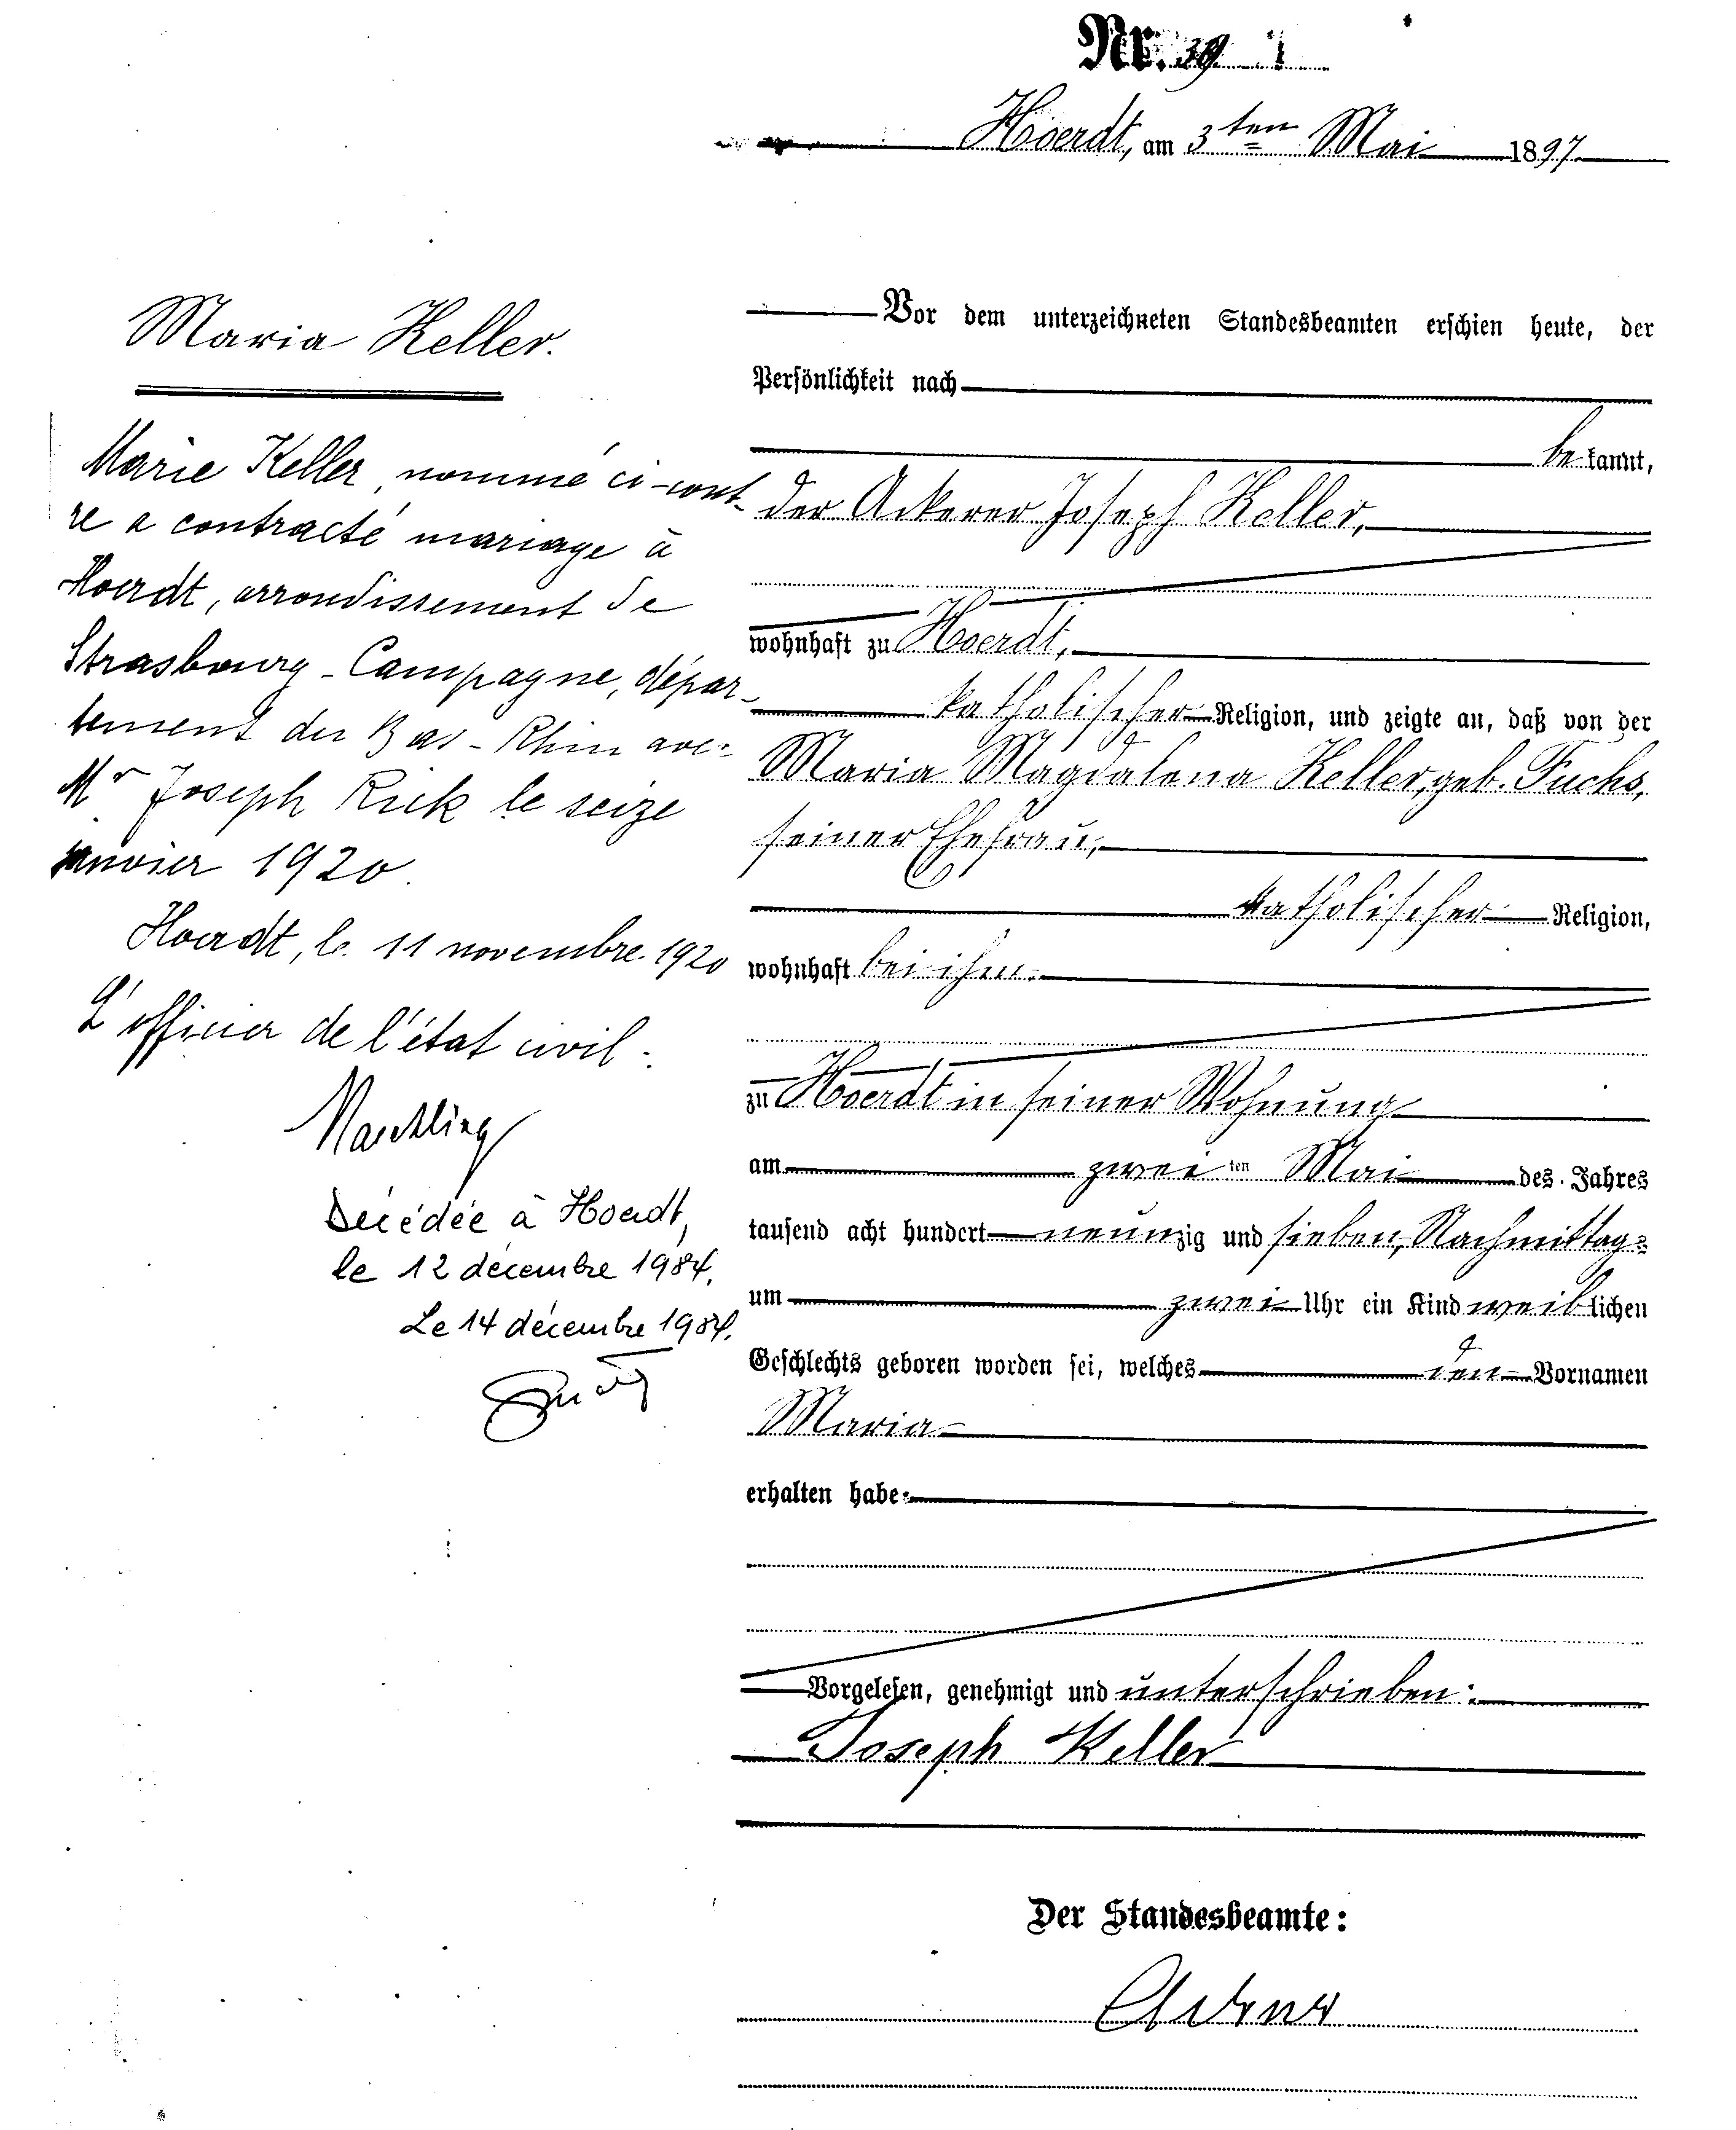 Nr. 39
Hoerdt, am 3ten Mai 1897.
Maria Keller.
Marie Keller, nommé ci-cont-
re a contracté mariage à
Hoerdt, arrondissement de
Strasbourg-Campagne, dépar-
tement du Bas-Rhin avec
Mr Joseph Rick le seize
janvier 1920.
Hoerdt, le 11 novembre 1920
L'officier de l'état civil:
Décédée à Hoerdt,
le 12 décembre 1984.
Le 14 décembre 1984.
Vor dem unterzeichneten Standesbeamten erschien heute, der
Persönlichkeit nach
bekannt,
der Ackerer Joseph Keller,
wohnhaft zu Hoerdt,
katholischer Religion, und zeigte an, daß von der
Maria Magdalena Keller, geb. Fuchs,
seiner Ehefrau,
katholischer Religion,
wohnhaft bei ihm
zu Hoerdt in seiner Wohnung
am zweiten Mai des Jahres
tausend acht hundert neunzig und sieben, Nachmittags
um zwei Uhr ein Kind weiblichen
Geschlechts geboren worden sei, welches den Vornamen
Maria
erhalten habe.
Vorgelesen, genehmigt und unterschrieben:
Joseph Keller
Der Standesbeamte: